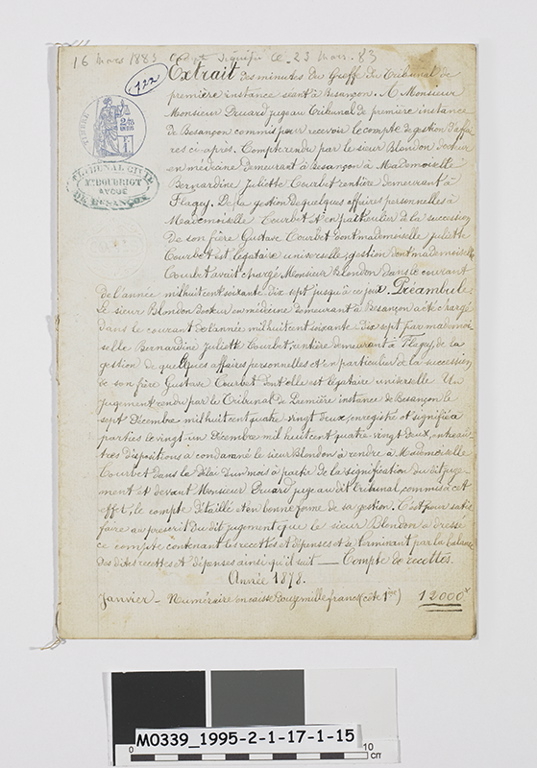 16 mars 1883 Copie signifiée le 23 mars 83
122
Extrait des minutes du Greffe du Tribunal de
première instance séant à Besançon. A Monsieur
Monsieur Druard juge au Tribunal de première instance
de Besançon commis pour recevoir le compte de gestion d'affai
res ci-après. Compte rendu par le sieur Blondon docteur
en médecine demeurant à Besançon à Mademoiselle
Bernardine Juliette Courbet rentière demeurant à
Flagey. De la gestion de quelques affaires personnelles à
Mademoiselle Courbet et en particulier de la succession
de son frère Gustave Courbet dont mademoiselle Juliette
Courbet est légataire universelle, gestion dont mademoiselle
Courbet avait chargé Monsieur Blondon dans le courant
de l'année mil huit cent soixante dix sept jusqu'à ce jour. Préambule
Le sieur Blondon docteur en médecine demeurant à Besançon a été chargé
dans le courant de l'année mil huit cent soixante dix sept par mademoi
selle Bernardine Juliette Courbet, rentière demeurant à Flagey, de la
gestion de quelques affaires personnelles et en particulier de la succession
de son frère Gustave Courbet dont elle est légataire universelle. Un
jugement rendu par le Tribunal de Première instance de Besançon le
sept Décembre mil huit cent quatre vingt deux, enregistré et signifié à
parties le vingt un Décembre mil huit cent quatre vingt deux, entre au
tres dispositions a condamné le sieur Blondon à rendre à Mademoiselle
Courbet dans le délai d'un mois à partir de la signification du dit juge
ment et devant Monsieur Druard juge au dit Tribunal, commis à cet
effet, le compte détaillé et en bonne forme de sa gestion. C'est pour satis
faire au prescrit du dit jugement que le sieur Blondon a dressé
ce compte contenant les recettes et dépenses et se terminant par la balance
des dites recettes et dépenses ainsi qu'il suit — Compte de recettes.
Année 1878.
Janvier — Numéraire en caisse douze mille francs (côte 1ère) 12000f
TIMBRE
TRIBUNAL CIVIL
Me BOUDRIOT
AVOUÉ
DE BESANÇON
M0339_1995-2-1-17-1-15
0 10
cm